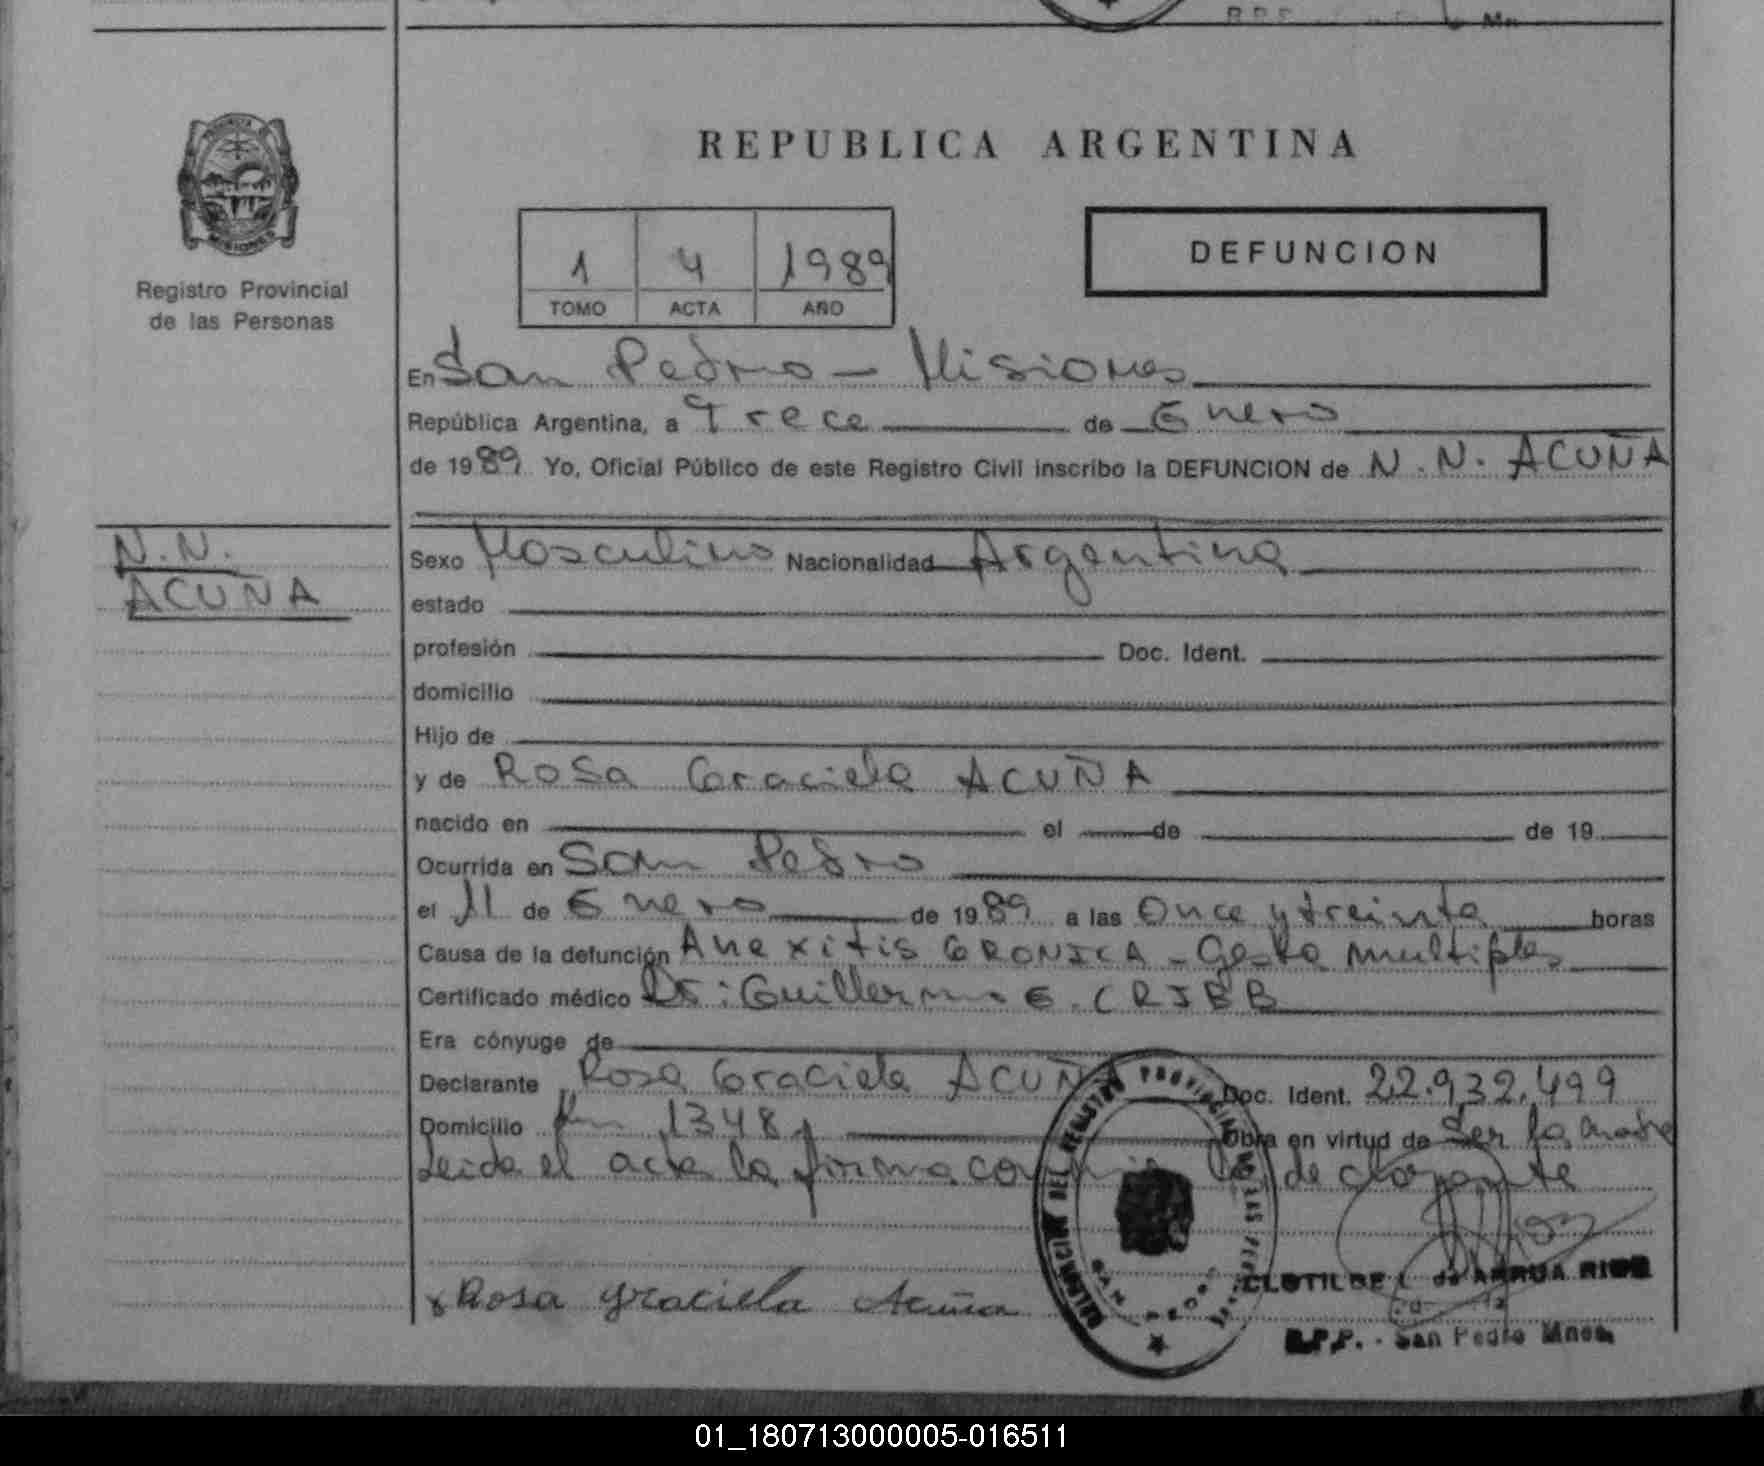 REPUBLICA ARGENTINA
Registro Provincial
de las Personas
1 4 1989
TOMO ACTA AÑO
DEFUNCION
En San Pedro - Misiones
República Argentina, a Trece de Enero
de 1989 Yo, Oficial Público de este Registro Civil inscribo la DEFUNCION de N.N. ACUÑA
N.N.
ACUÑA
Sexo Masculino Nacionalidad Argentina
estado
profesión Doc. Ident.
domicilio
Hijo de
y de ROSA Graciela ACUÑA
nacido en el de de 19
Ocurrida en San Pedro
el 11 de Enero de 1989 a las Once y treinta horas
Causa de la defunción Anexitis CRONICA - Gesta multiples
Certificado médico Dr: Guillermo E. CRIBB
Era cónyuge de
Declarante Rosa Graciela ACUÑA Doc. Ident. 22.932.499
Domicilio Km 1348 Obra en virtud de Ser la madre
Leida el acta la firma conmigo la declarante
Rosa Graciela Acuña
CLOTILDE L. de ARRUA RIOS
R.P.P. - San Pedro Mnes.
01_180713000005-016511